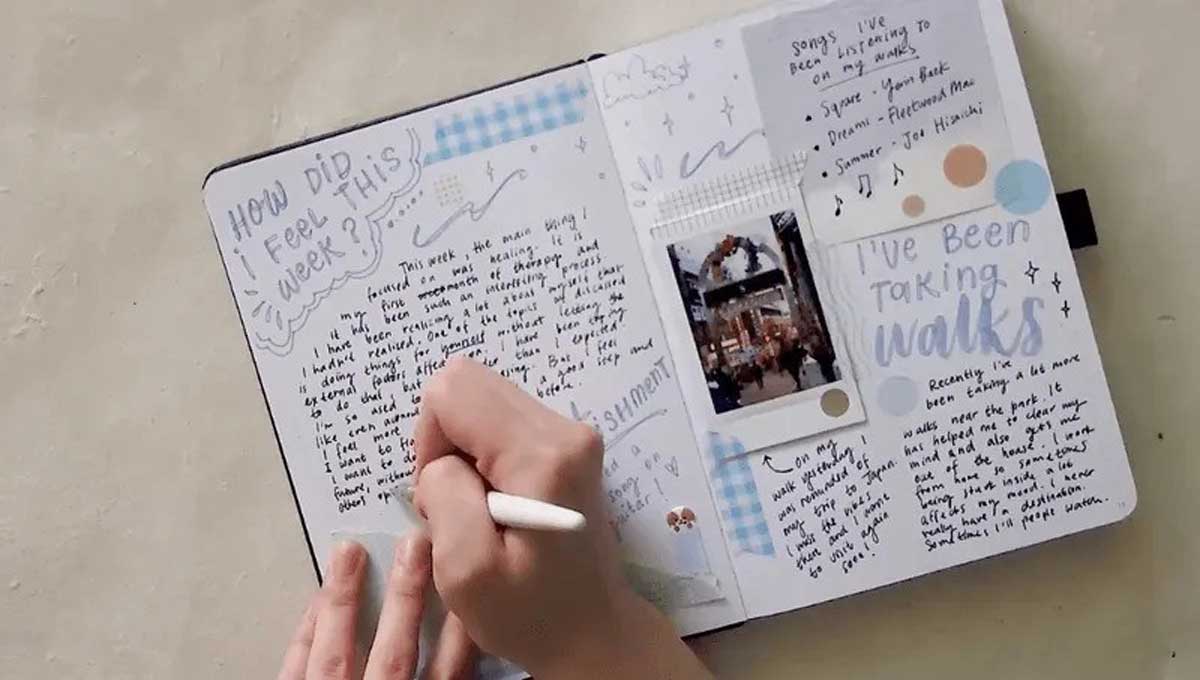 HOW DID
i FEEL THIS
WEEK?
This week, the main thing I
focused on was healing. It is
my first month of therapy and
it has been such an interesting process
I have been realizing a lot about myself that
I hadn't realised. One of the topics we discussed
is doing things for yourself without letting the
external factors affect I have been trying
to do that than I expected.
I'm so used But I feel
like even a good step and
I feel more before.
I want to
I want to do
future,
others'
ISHMENT
on
song
SONGS I'VE
BEEN LISTENING TO
ON MY WALKS
• Square - Yerin Baek
• Dreams - Fleetwood Mac
• Summer - Joe Hisaichi
I'VE BEEN
TAKING
walks
Recently I've
been taking a lot more
walks near the park. It
has helped me to clear my
mind and also gets me
out of the house. I work
from home so sometimes
being stuck inside a lot
affects my mood. I never
really have a destination.
Sometimes I'll people watch.
on my
walk yesterday I
was reminded of
my trip to Japan.
I miss the vibes
there and I want
to visit again
soon!